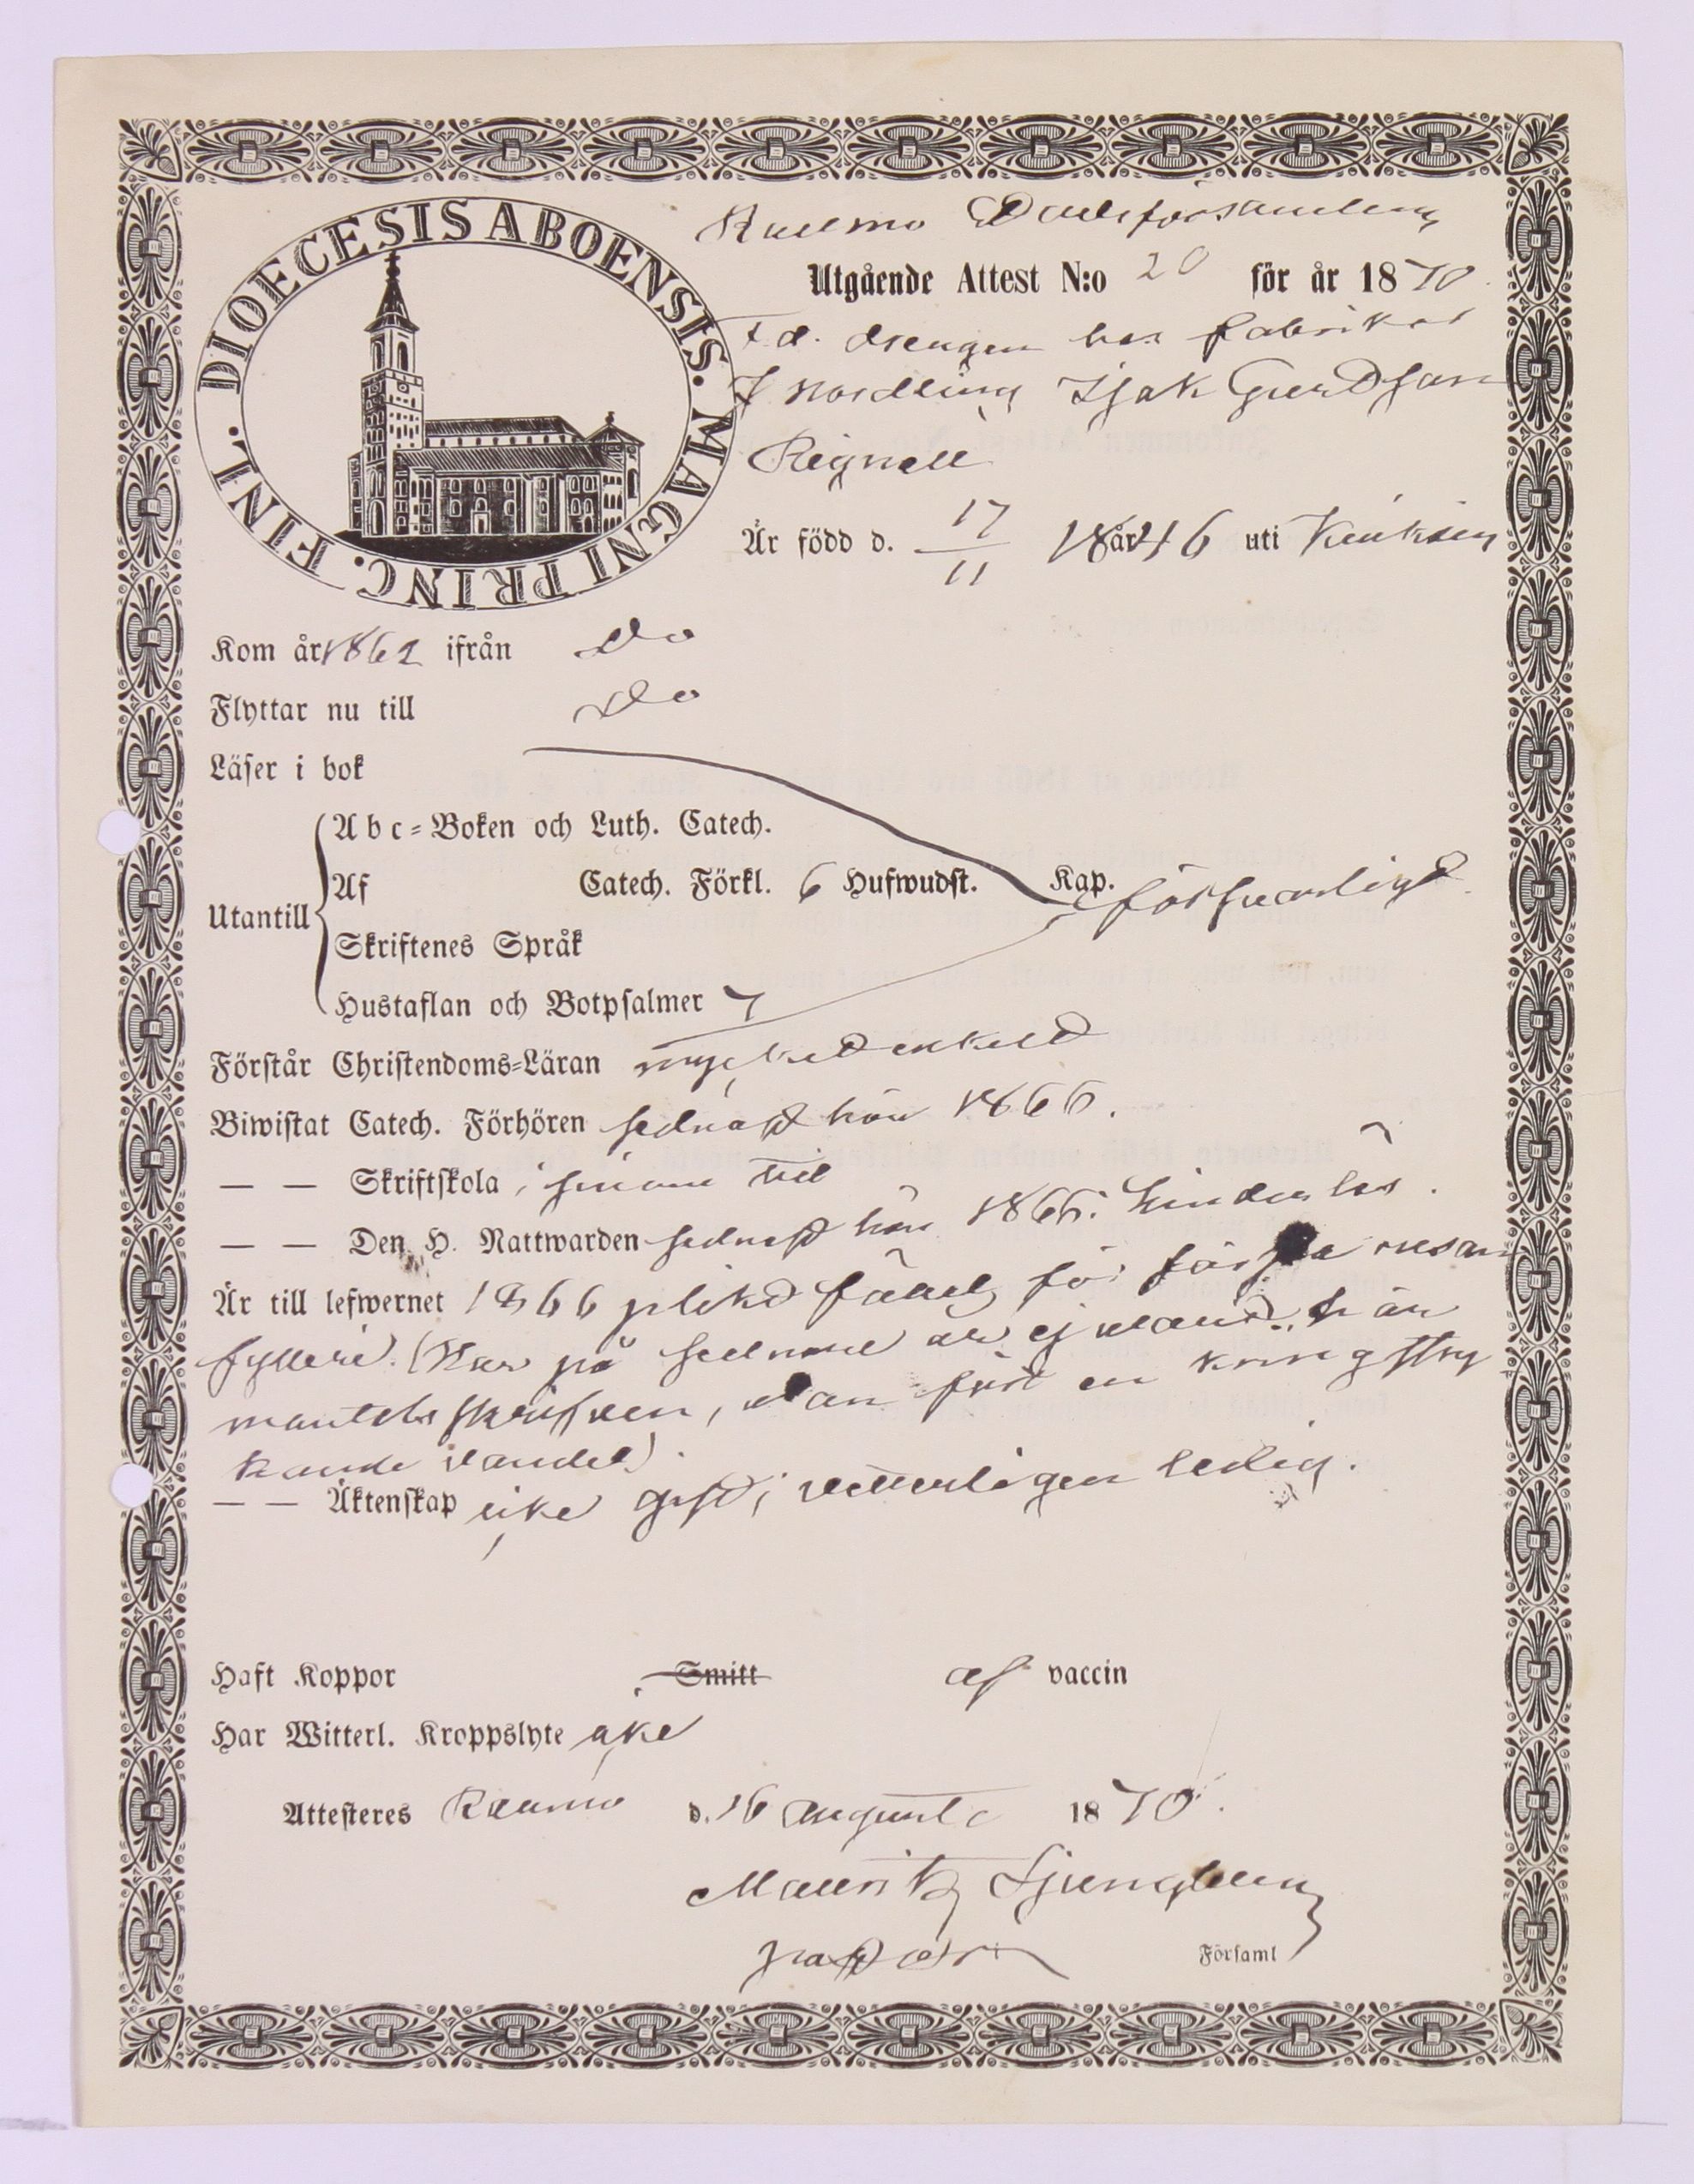 DIOECESIS ABOENSIS. MAGNI PRINC. FINL.
Raumo Stadsförsamling
Utgående Attest N:o 20 för år 1870.
F. d. drengen hos fabrikor
F Nordling Isak Gustafsson
Regnell
Är född d. 17/11 år 1846 uti
Kom år 1862 ifrån Do
Flyttar nu till Do
Läser i bok
Abc-Boken och Luth. Catech.
Utantill
Af Catech. Förkl. 6 Hufwudst. Kap. försvarligt
Skriftenes Språk
Hustaflan och Botpsalmer 7
Förstår Christendoms-Läran mycket enkelt
Biwistat Catech. Förhören sednast här 1866.
— — Skriftskola i sinom tid
— — Den H. Nattwarden sednast här 1866. Hinderlös.
Är till lefwernet 1866 plikt fäld för första resan
fylleri. (Har på sednare år ej varit här i
mantalsskrifven, utan fört en kringstry
kande vandel).
— — Äktenskap icke gift; vetterligen ledig.
Haft Koppor Smitt af vaccin
Har Witterl. Kroppslyte icke
Attesteres Raumo d. 16 augusti 1870.
Mauritz Ljungberg
pastor Församl